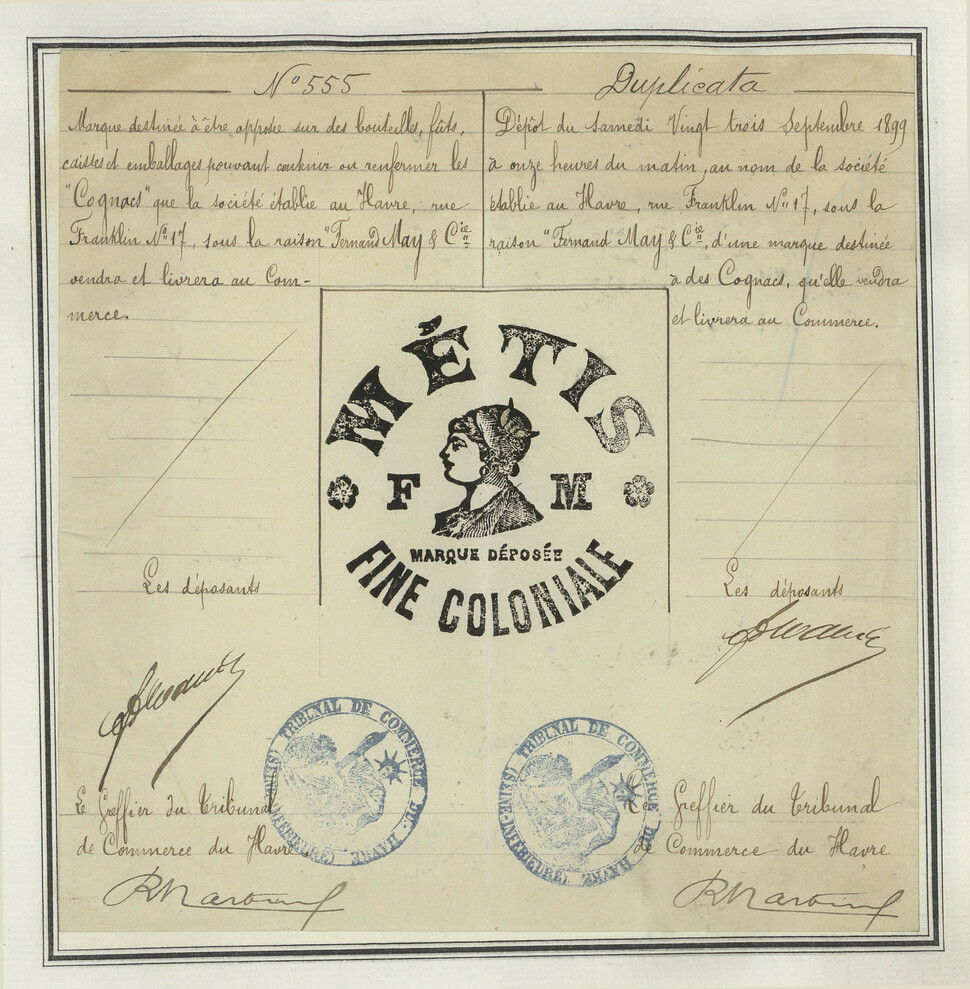 Nº 555
Marque destinée à être apposée sur des bouteilles, fûts,
caisses et emballages pouvant contenir ou renfermer les
"Cognacs" que la société établie au Havre, rue
Franklin Nº 17, sous la raison "Fernand May & Cie"
vendra et livrera au Com-
merce.
Duplicata
Dépôt du Samedi Vingt trois Septembre 1899
à onze heures du matin, au nom de la société
établie au Havre, rue Franklin Nº 17, sous la
raison "Fernand May & Cie", d'une marque destinée
à des Cognacs, qu'elle vendra
et livrera au Commerce.
MÉTIS
F M
MARQUE DÉPOSÉE
FINE COLONIALE
Les déposants
Les déposants
TRIBUNAL DE COMMERCE DU HAVRE (SEINE-INFÉRIEURE)
TRIBUNAL DE COMMERCE DU HAVRE (SEINE-INFÉRIEURE)
Le Greffier du Tribunal
de Commerce du Havre
Le Greffier du Tribunal
de Commerce du Havre